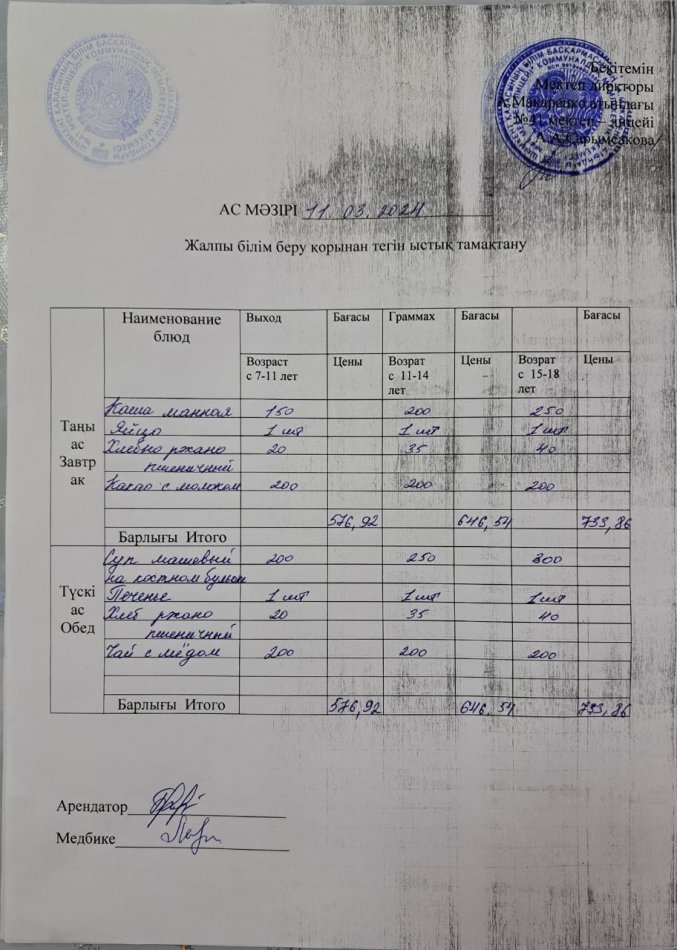 Бекітемін
Мектеп дирқторы
А.Макаренко атындағы
№41 мектеп – лицейі
А.А.Сарымсакова
АС МӘЗІРІ 11.03.2024
Жалпы білім беру қорынан тегін ыстық тамақтану
Наименование блюд Выход Бағасы Граммах Бағасы Бағасы
Возраст с 7-11 лет Цены Возрат с 11-14 лет Цены Возрат с 15-18 лет Цены
Таңы ас Завтр ак
Каша манная 150 200 250
Яйцо 1 шт 1 шт 1 шт
Хлебно ржано 20 35 40
пшеничный
Какао с молоком 200 200 200
576,92 646,54 733,86
Барлығы Итого
Түскі ас Обед
Суп машевый 200 250 300
на костном бульон
Печенье 1 шт 1 шт 1 шт
Хлеб ржано 20 35 40
пшеничный
Чай с мёдом 200 200 200
Барлығы Итого 576,92 646,54 733,86
Арендатор
Медбике